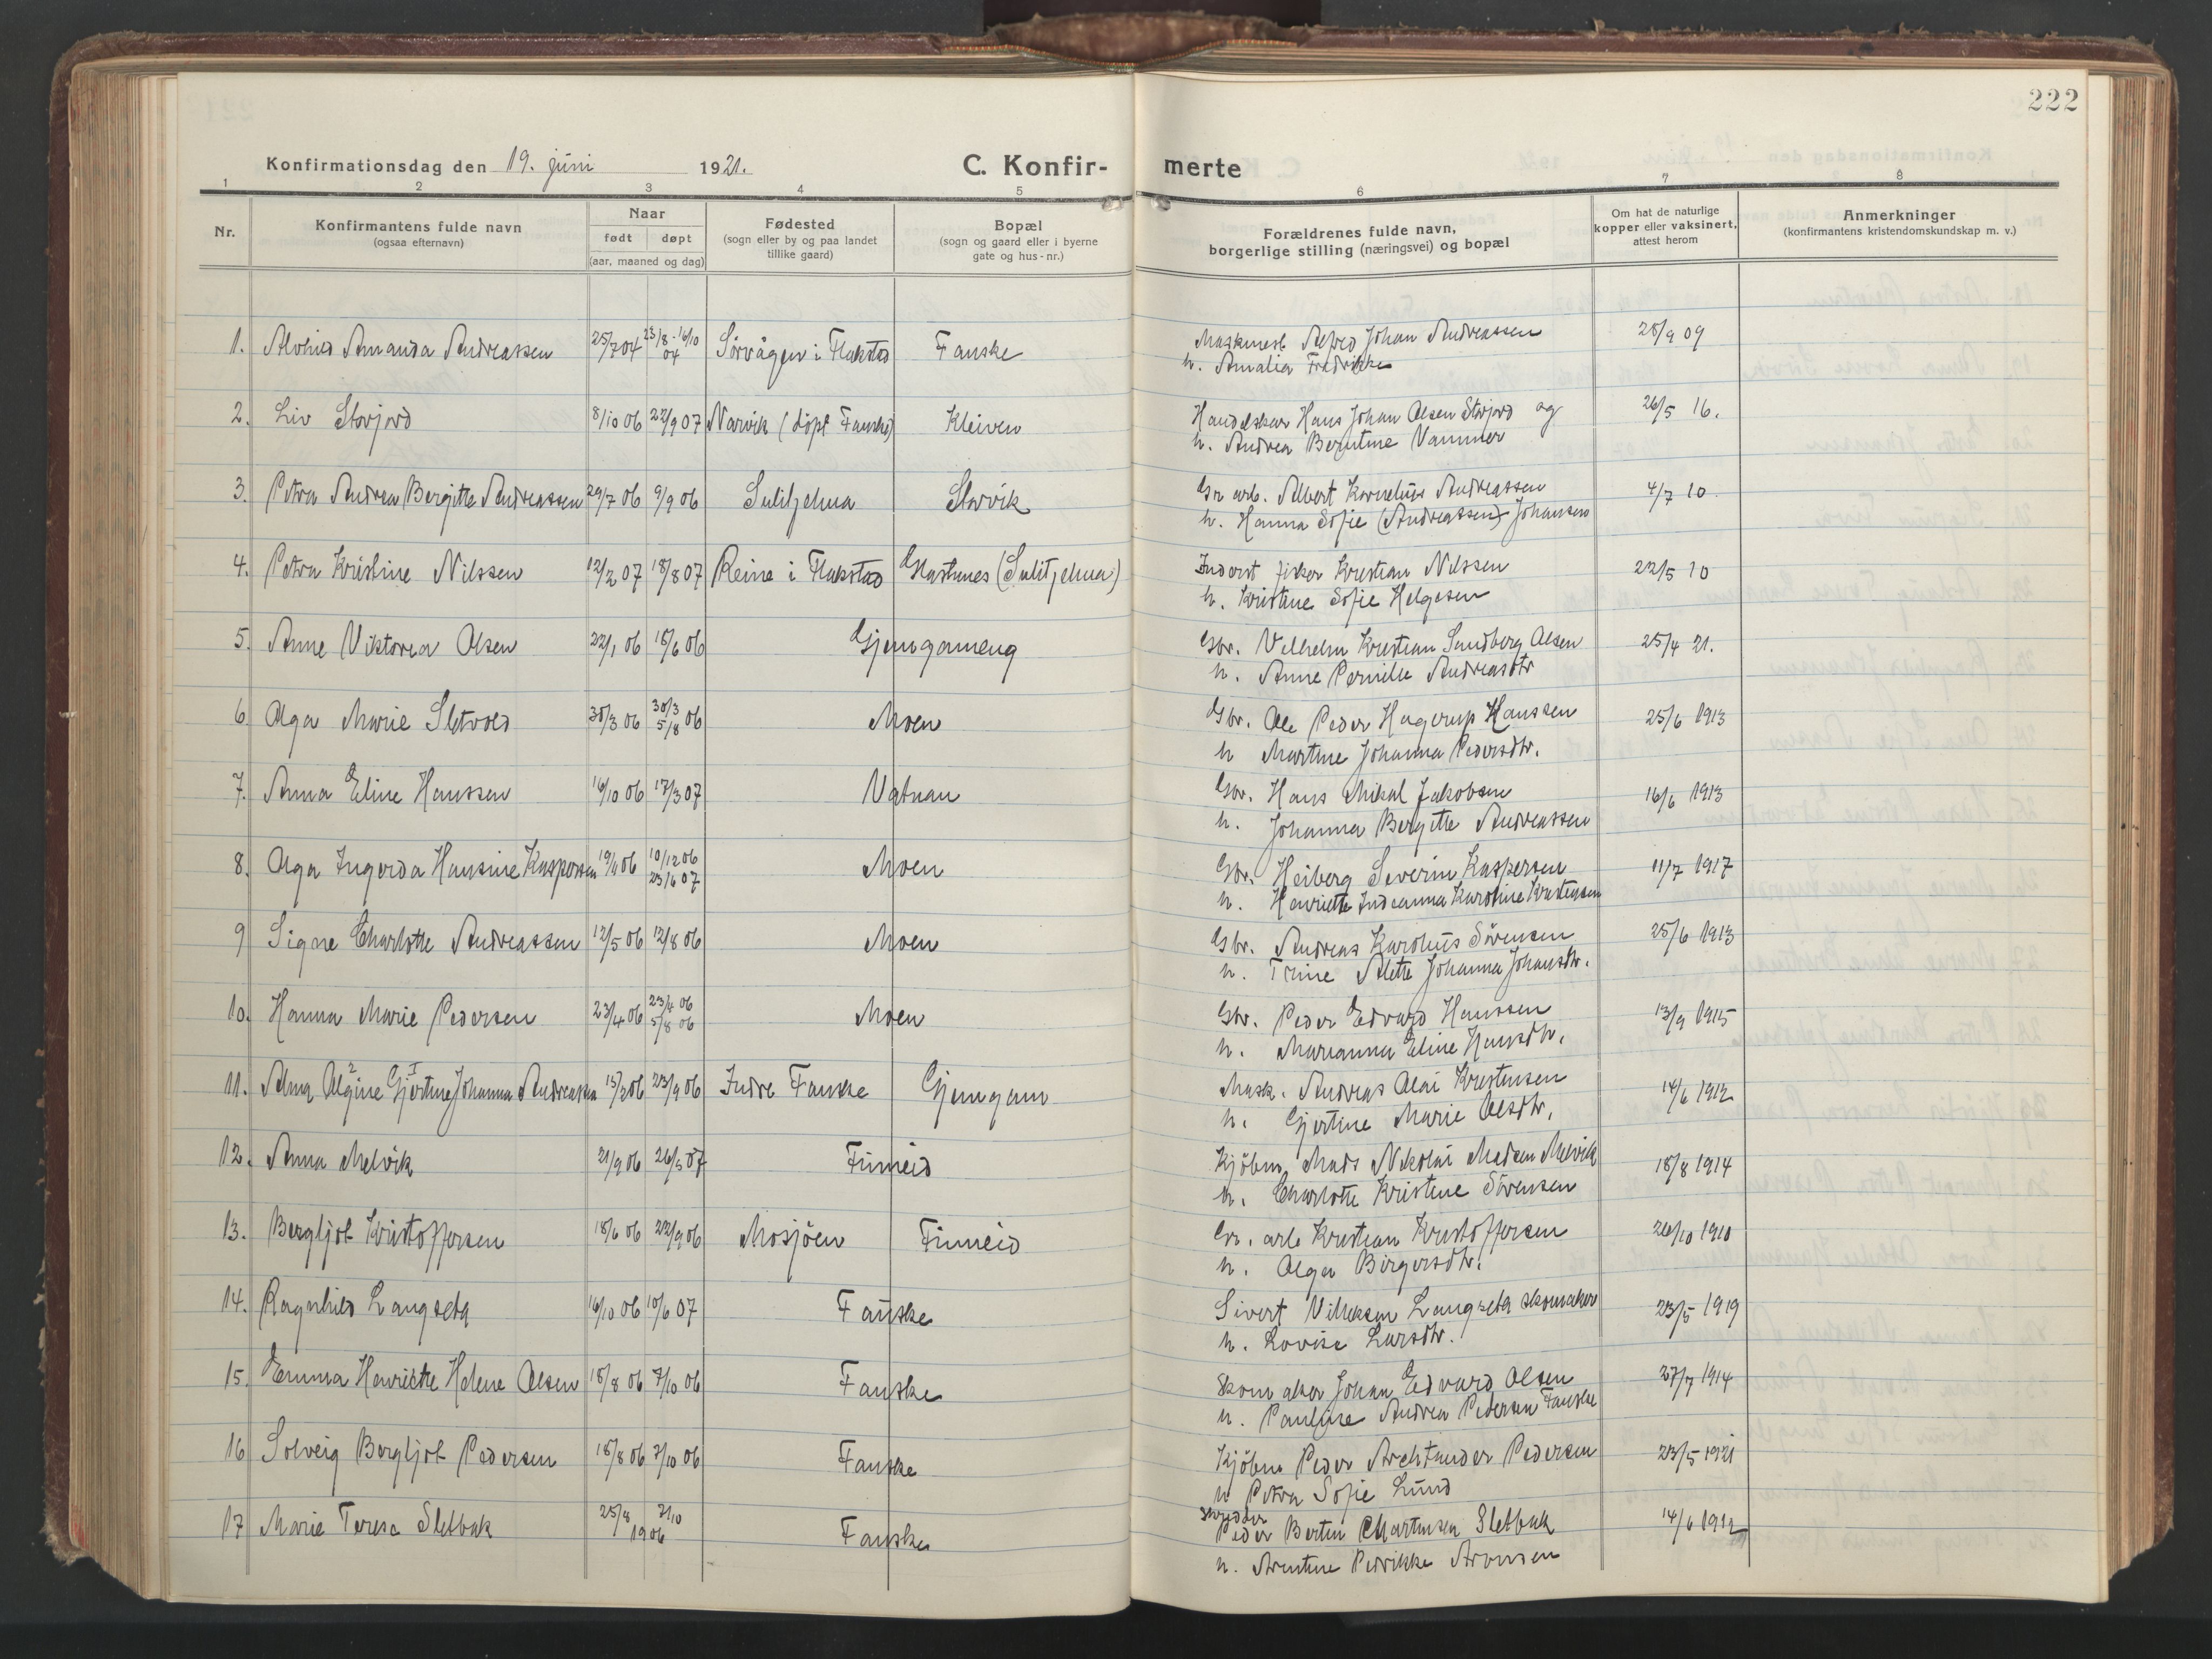 222
Konfirmationsdag den 19. juni 1921. C. Konfir- merte
1 2 3 4 5 6 7 8
Nr. Konfirmantens fulde navn (ogsaa efternavn) Naar født døpt (aar, maaned og dag) Fødested (sogn eller by og paa landet tillike gaard) Bopæl (sogn og gaard eller i byerne gate og hus-nr.) Forældrenes fulde navn, borgerlige stilling (næringsvei) og bopæl Om hat de naturlige kopper eller vaksinert, attest herom Anmerkninger (konfirmantens kristendomskundskap m. v.)
1. Alvhild Amanda Andreassen 25/7 04 23/8 - 16/10 04 Sörvågen i Flakstad Fauske Maskinest. Alfred Johan Andreassen 28/9 09
h. Amalia Fredrikke
2. Liv Storjord 8/10 06 22/9 07 Narvik (döpt Fauske) Kleiven Handelskar Hans Johan Olsen Storjord og 26/5 16.
h. Andrea Berntine Vammer
3. Petra Andrea Bergitte Andreassen 29/7 06 9/9 06 Sulitjelma Storvik Gr. arb. Albert Kornelius Andreassen 4/7 10
h. Hanna Sofie (Andreassen) Johansen
4. Petra Kristine Nilssen 12/2 07 18/8 07 Reine i Flakstad Glastunes (Sulitjelma) Inderst fisker Kristian Nilssen 22/5 10
h. Kristine Sofie Helgesen
5. Anne Viktoria Olsen 22/1 06 18/6 06 Gjemgameng Gbr. Vilhelm Kristian Sundberg Olsen 25/4 21.
h. Anne Pernille Andreasdtr
6 Olga Marie Sletvold 30/3 06 30/3 5/8 06 Moen Gbr. Ole Peder Hagerup Hanssen 25/6 1913
h Martine Johanna Pedersdtr.
7. Anna Eline Hanssen 16/10 06 17/3 07 Vatnan Gbr. Hans Mikal Jakobsen 16/6 1913
h. Johanna Bergitte Andreassen
8. Olga Ingerda Hansine Kaspersen 19/11 06 10/12 06 23/6 07 Moen Gbr. Heiberg Severin Kaspersen 11/7 1917
h. Henriette Indianna Karoline Kristensen
9 Signe Charlotte Andreassen 12/5 06 12/8 06 Moen Gbr. Andreas Karolius Sörensen 25/6 1913
h. Trine Alette Johanna Johansdtr.
10. Hanna Marie Pedersen 23/4 06 23/4 06 5/8 06 Moen Gbr. Peder Edvard Hanssen 13/9 1915
h. Marianna Eline Hansdtr.
11. Alma Olgine Gjertine Johanna Andreassen 15/2 06 23/9 06 Indre Fauske Gjemgam Mask. Andreas Olai Kristensen 14/6 1912
h. Gjertine Marie Olsdtr.
12. Anna Melvik 21/9 06 26/5 07 Finneid Kjöbm. Mads Nikolai Madsen Melvik 18/8 1914
h. Charlotte Kristine Sörensen
13. Bergljot Kristoffersen 18/6 06 22/9 06 Mosjöen Finneid Gr. arb Kristian Kristoffersen 26/10 1910
h. Olga Birgersdtr.
14. Ragnhild Langseth 16/10 06 10/6 07 Fauske Sivert Villiksen Langseth skomaker 23/5 1919
h. Lovise Larsdtr.
15. Emma Henriette Helene Olsen 18/8 06 7/10 06 Fauske Skomaker Johan Edvard Olsen 27/7 1914
h. Pauline Andrea Pedersen Fauske
16 Solveig Bergljot Pedersen 18/8 06 7/10 06 Fauske Kjöbm Peder Pedersen 23/5 1921
h Petra Sofie Lund
17 Marie Teresa Sletbak 25/8 7/10 1906 Fauske skredder Peder Bertin Martinsen Sletbak 14/6 1912
h. Arntine Pedrikke Aronsen